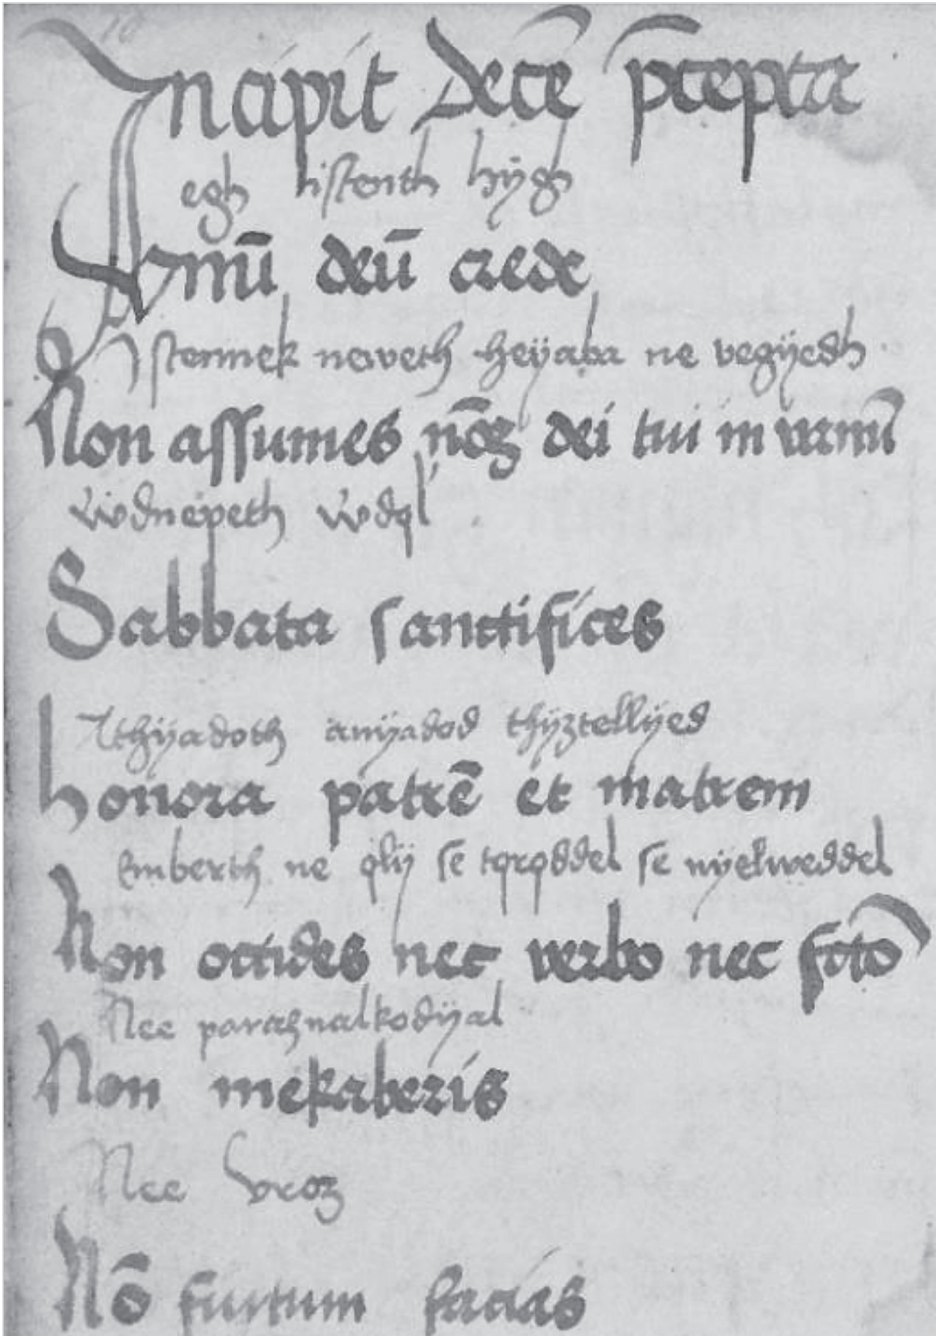 Incipit decē p̄cepta
egh istenth hijgh
Unū deū crede
Istennek neweth heyaba ne vegyedh
Non assumes nōē dei tui in vanū
wdnepeth wdql
Sabbata sanctifices
Athyadoth anyadod thyztellyed
honora patrē et matrem
Emberth ne qlij se tqrqddel se myelweddel
Non occides nec verbo nec fcto
Nee paraznalkodyal
Non mekaberis
Nee vroz
Nō furtum facias